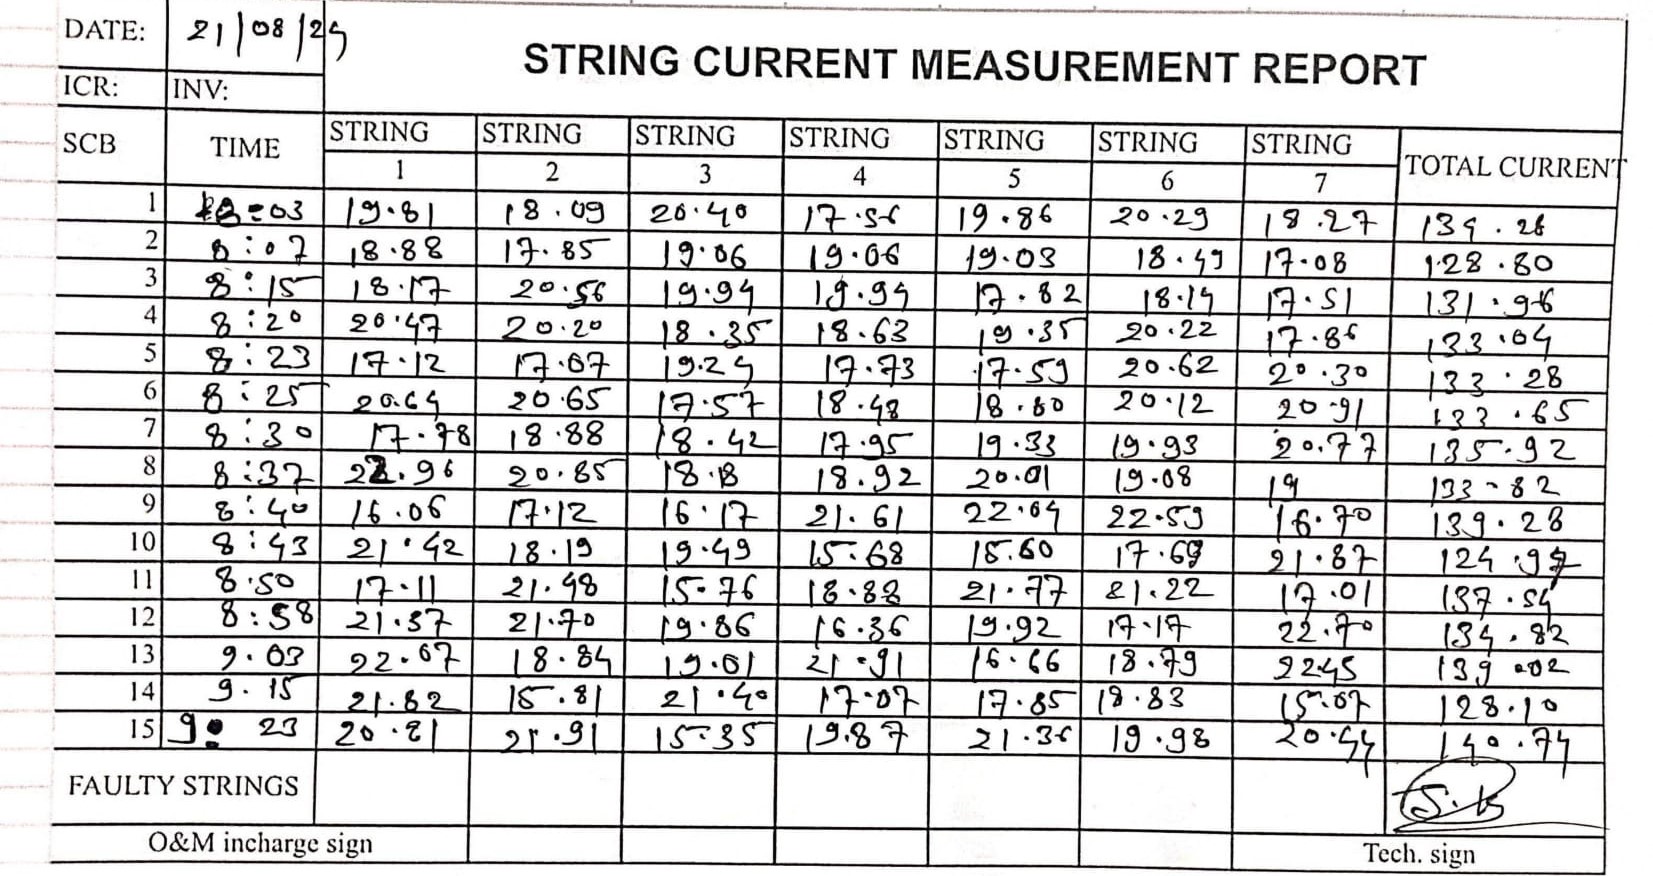 DATE: 21/08/25
STRING CURRENT MEASUREMENT REPORT
ICR: INV:
SCB TIME STRING 1 STRING 2 STRING 3 STRING 4 STRING 5 STRING 6 STRING 7 TOTAL CURRENT
1 8:03 19.81 18.09 20.40 17.56 19.86 20.29 18.27 134.28
2 8:07 18.88 17.85 19.06 19.06 19.03 18.49 17.08 128.80
3 8:15 18.17 20.56 19.94 19.94 17.82 18.14 17.51 131.96
4 8:20 20.47 20.20 18.35 18.63 19.35 20.22 17.86 133.04
5 8:23 17.12 17.67 19.24 17.73 17.59 20.62 20.30 133.28
6 8:25 20.64 20.65 17.57 18.48 18.80 20.12 20.91 133.65
7 8:30 17.78 18.88 18.42 17.95 19.33 19.93 20.77 135.92
8 8:37 .96 20.85 18.18 18.92 20.01 19.08 19 133.82
9 8:40 16.06 17.12 16.17 21.61 22.64 22.59 16.70 139.28
10 8:43 21.42 18.19 19.49 15.68 15.60 17.69 21.87 124.97
11 8.50 17.11 21.48 15.76 18.88 21.77 21.22 17.01 137.54
12 8:58 21.37 21.70 19.86 16.36 19.92 17.17 22.70 134.82
13 9.03 22.67 18.84 19.01 21.91 16.66 18.79 2245 139.02
14 9.15 21.82 15.81 21.40 17.07 17.85 18.83 15.67 128.10
15 9: 23 20.21 21.91 15.35 19.87 21.36 19.98 20.44 140.74
FAULTY STRINGS
O&M incharge sign Tech. sign